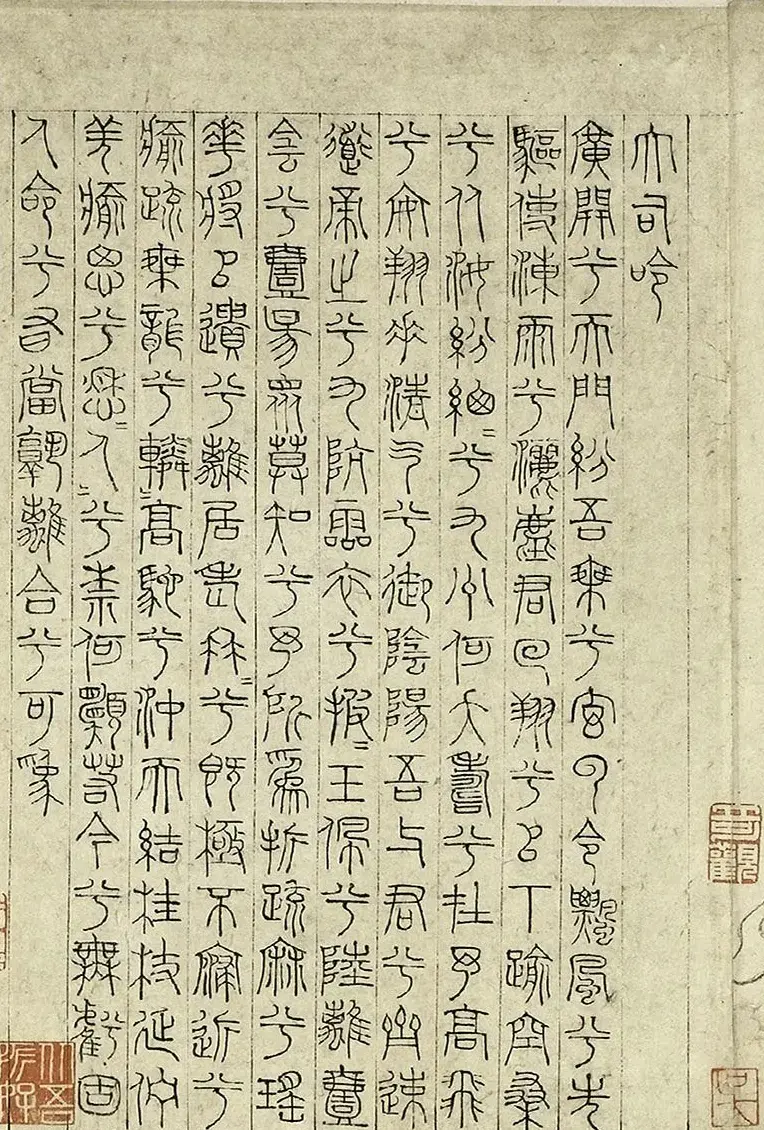 大司命
廣開兮天門紛吾乘兮玄雲令飄風兮先
驅使涷雨兮灑塵君回翔兮㠯下踰空桑
兮从汝紛緫〻兮九州何夭壽兮在予高飛
兮安翔乘清气兮御陰陽吾与君兮齊速
導帝之兮九阬靈衣兮披〻玉佩兮陸離壹
陰兮壹陽眾莫知兮予所為折疏麻兮瑤
華將㠯遺兮離居老冉〻兮既極不寖近兮
瘉疏乘龍兮轔〻高馳兮沖天結桂枝延佇
羌瘉思兮愁〻人〻兮柰何願若今兮無虧固
人命兮有當孰離合兮可為